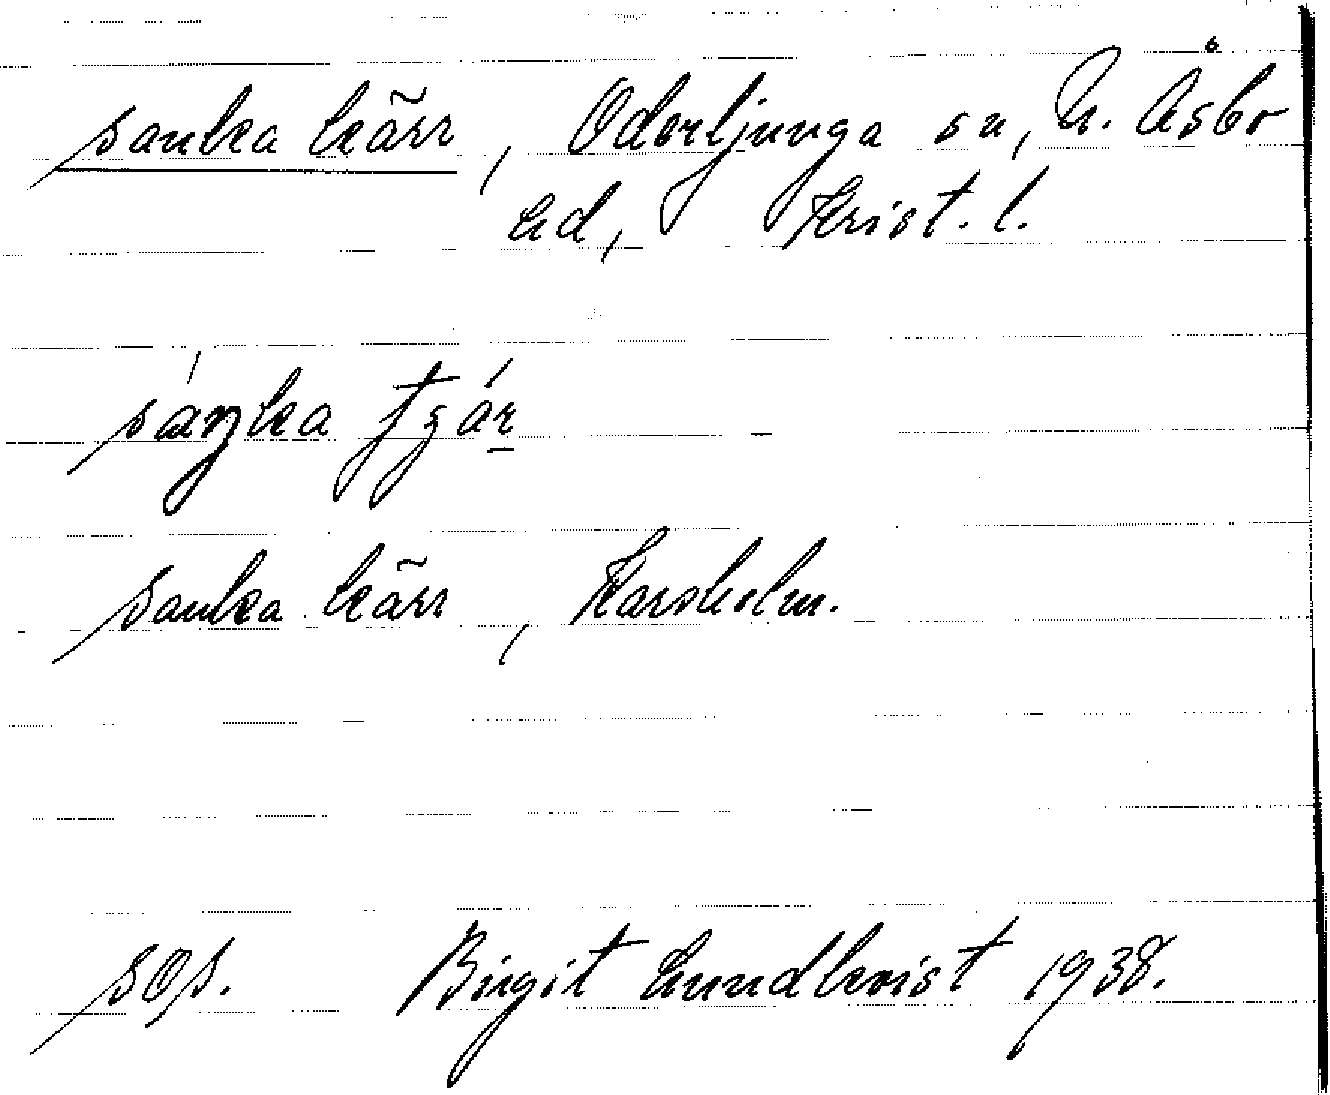 sanka kärr, Oderljunga sn, N. Åsbo
hd, Krist. l.
sáŋka tʃár
sanka kärr, Karsholm.
sos. Birgit Lundkvist 1938.